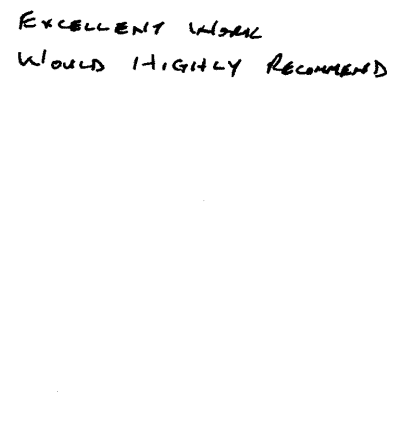 EXCELLENT WORK
WOULD HIGHLY RECOMMEND